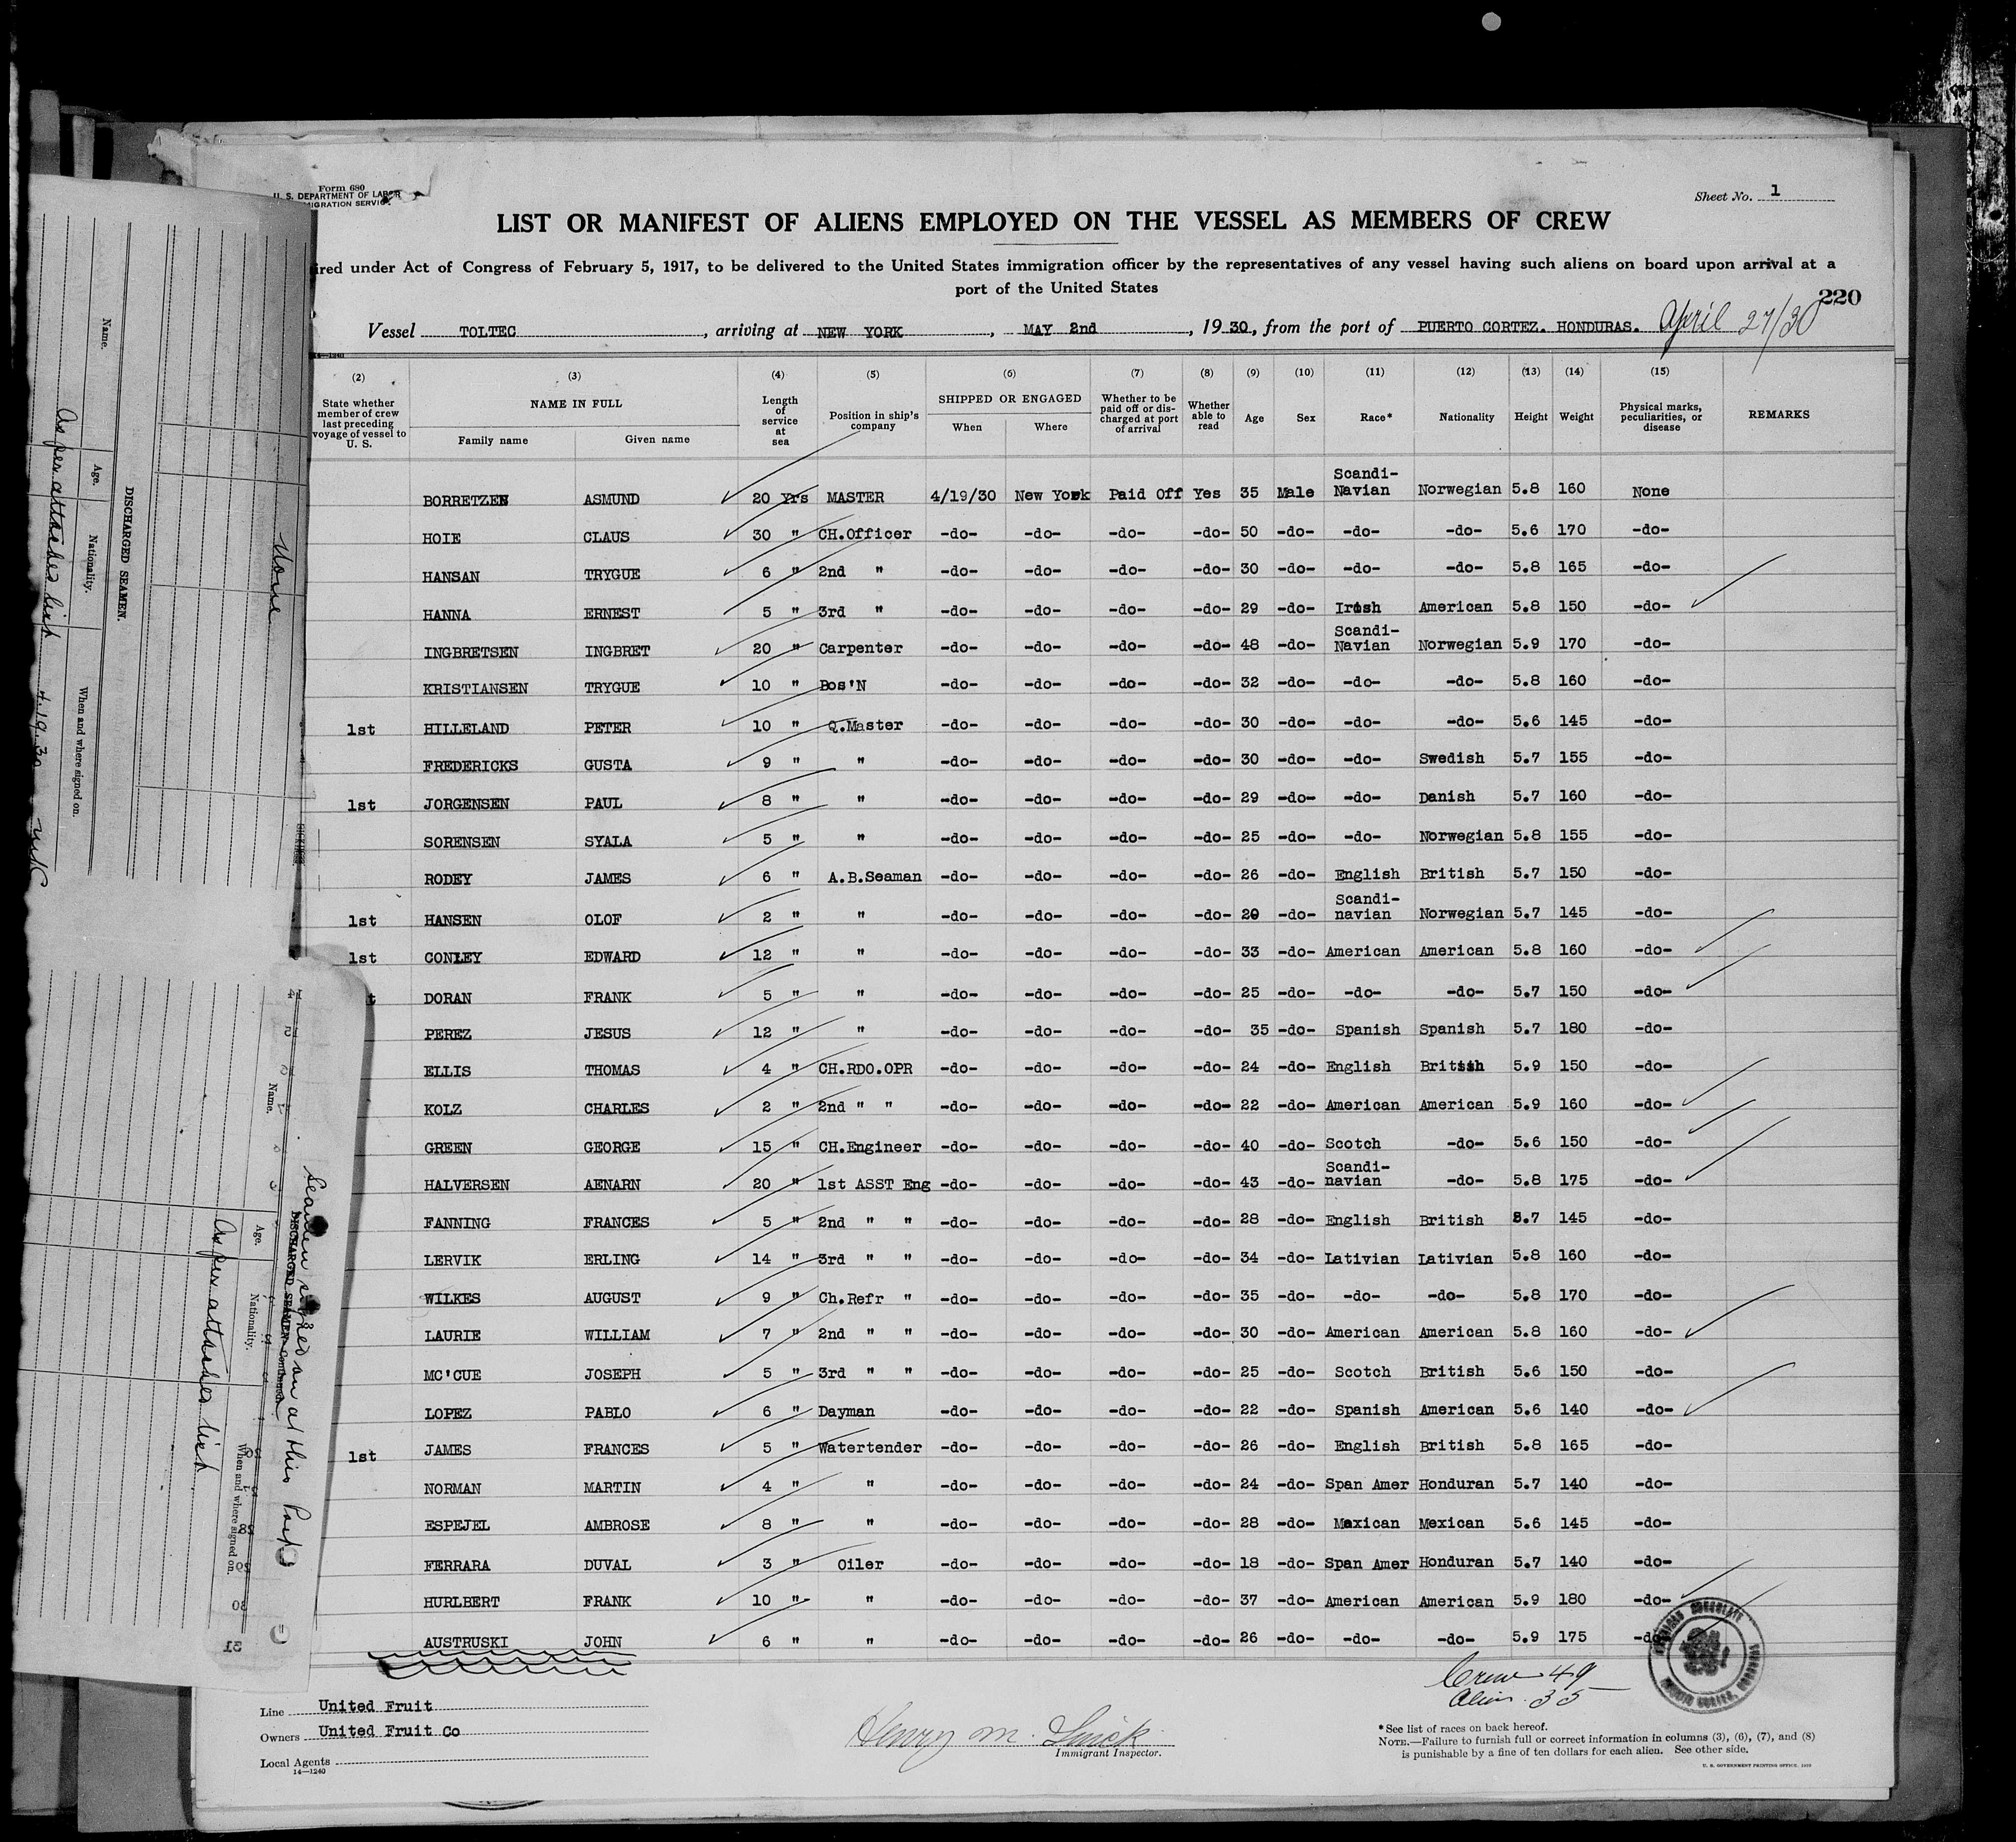 Form 680
U. S. DEPARTMENT OF LABOR
MIGRATION SERVIC
Sheet No. 1
LIST OR MANIFEST OF ALIENS EMPLOYED ON THE VESSEL AS MEMBERS OF CREW
ired under Act of Congress of February 5, 1917, to be delivered to the United States immigration officer by the representatives of any vessel having such aliens on board upon arrival at a
port of the United States
220
Vessel TOLTEC, arriving at NEW YORK, MAY 2nd, 19 30, from the port of PUERTO CORTEZ. HONDURAS. April 27/30
14—1240
(2) (3) (4) (5) (6) (7) (8) (9) (10) (11) (12) (13) (14) (15)
State whether member of crew last preceding voyage of vessel to U. S. NAME IN FULL Family name Given name Length of service at sea Position in ship's company SHIPPED OR ENGAGED When Where Whether to be paid off or discharged at port of arrival Whether able to read Age Sex Race* Nationality Height Weight Physical marks, peculiarities, or disease REMARKS
BORRETZEN ASMUND 20 Yrs MASTER 4/19/30 New York Paid Off Yes 35 Male Scandi-Navian Norwegian 5.8 160 None
HOIE CLAUS 30 " CH.Officer -do- -do- -do- -do- 50 -do- -do- -do- 5.6 170 -do-
HANSAN TRYGUE 6 " 2nd " -do- -do- -do- -do- 30 -do- -do- -do- 5.8 165 -do-
HANNA ERNEST 5 " 3rd " -do- -do- -do- -do- 29 -do- Irish American 5.8 150 -do-
INGBRETSEN INGBRET 20 " Carpenter -do- -do- -do- -do- 48 -do- Scandi-Navian Norwegian 5.9 170 -do-
KRISTIANSEN TRYGUE 10 " Bos'N -do- -do- -do- -do- 32 -do- -do- -do- 5.8 160 -do-
1st HILLELAND PETER 10 " Q.Master -do- -do- -do- -do- 30 -do- -do- -do- 5.6 145 -do-
FREDERICKS GUSTA 9 " " -do- -do- -do- -do- 30 -do- -do- Swedish 5.7 155 -do-
1st JORGENSEN PAUL 8 " " -do- -do- -do- -do- 29 -do- -do- Danish 5.7 160 -do-
SORENSEN SYALA 5 " " -do- -do- -do- -do- 25 -do- -do- Norwegian 5.8 155 -do-
RODEY JAMES 6 " A.B.Seaman -do- -do- -do- -do- 26 -do- English British 5.7 150 -do-
1st HANSEN OLOF 2 " " -do- -do- -do- -do- 20 -do- Scandi-navian Norwegian 5.7 145 -do-
1st CONLEY EDWARD 12 " " -do- -do- -do- -do- 33 -do- American American 5.8 160 -do-
t DORAN FRANK 5 " " -do- -do- -do- -do- 25 -do- -do- -do- 5.7 150 -do-
PEREZ JESUS 12 " " -do- -do- -do- -do- 35 -do- Spanish Spanish 5.7 180 -do-
ELLIS THOMAS 4 " CH.RDO.OPR -do- -do- -do- -do- 24 -do- English British 5.9 150 -do-
KOLZ CHARLES 2 " 2nd " " -do- -do- -do- -do- 22 -do- American American 5.9 160 -do-
GREEN GEORGE 15 " CH.Engineer -do- -do- -do- -do- 40 -do- Scotch -do- 5.6 150 -do-
HALVERSEN AENARN 20 " 1st ASST Eng -do- -do- -do- -do- 43 -do- Scandi-navian -do- 5.8 175 -do-
FANNING FRANCES 5 " 2nd " " -do- -do- -do- -do- 28 -do- English British 5.7 145 -do-
LERVIK ERLING 14 " 3rd " " -do- -do- -do- -do- 34 -do- Lativian Lativian 5.8 160 -do-
WILKES AUGUST 9 " Ch.Refr " -do- -do- -do- -do- 35 -do- -do- -do- 5.8 170 -do-
LAURIE WILLIAM 7 " 2nd " " -do- -do- -do- -do- 30 -do- American American 5.8 160 -do-
MC'CUE JOSEPH 5 " 3rd " " -do- -do- -do- -do- 25 -do- Scotch British 5.6 150 -do-
LOPEZ PABLO 6 " Dayman -do- -do- -do- -do- 22 -do- Spanish American 5.6 140 -do-
1st JAMES FRANCES 5 " Watertender -do- -do- -do- -do- 26 -do- English British 5.8 165 -do-
NORMAN MARTIN 4 " " -do- -do- -do- -do- 24 -do- Span Amer Honduran 5.7 140 -do-
ESPEJEL AMBROSE 8 " " -do- -do- -do- -do- 28 -do- Mexican Mexican 5.6 145 -do-
FERRARA DUVAL 3 " Oiler -do- -do- -do- -do- 18 -do- Span Amer Honduran 5.7 140 -do-
HURLBERT FRANK 10 " " -do- -do- -do- -do- 37 -do- American American 5.9 180 -do-
AUSTRUSKI JOHN 6 " " -do- -do- -do- -do- 26 -do- -do- -do- 5.9 175 -do-
Crew 49
Alien 35
Line United Fruit
Owners United Fruit Co
Local Agents
14—1240
Henry M.
Immigrant Inspector.
*See list of races on back hereof.
NOTE.—Failure to furnish full or correct information in columns (3), (6), (7), and (8)
is punishable by a fine of ten dollars for each alien. See other side.
U. S. GOVERNMENT PRINTING OFFICE, 1929
None
DISCHARGED SEAMEN.
Name. Age. Nationality. When and where signed on.
As per attached list 4.19.30
Seamen signed on at this Port
DISCHARGED SEAMEN—Continued
Name. Age. Nationality. When and where signed on.
As per attached list
30
31